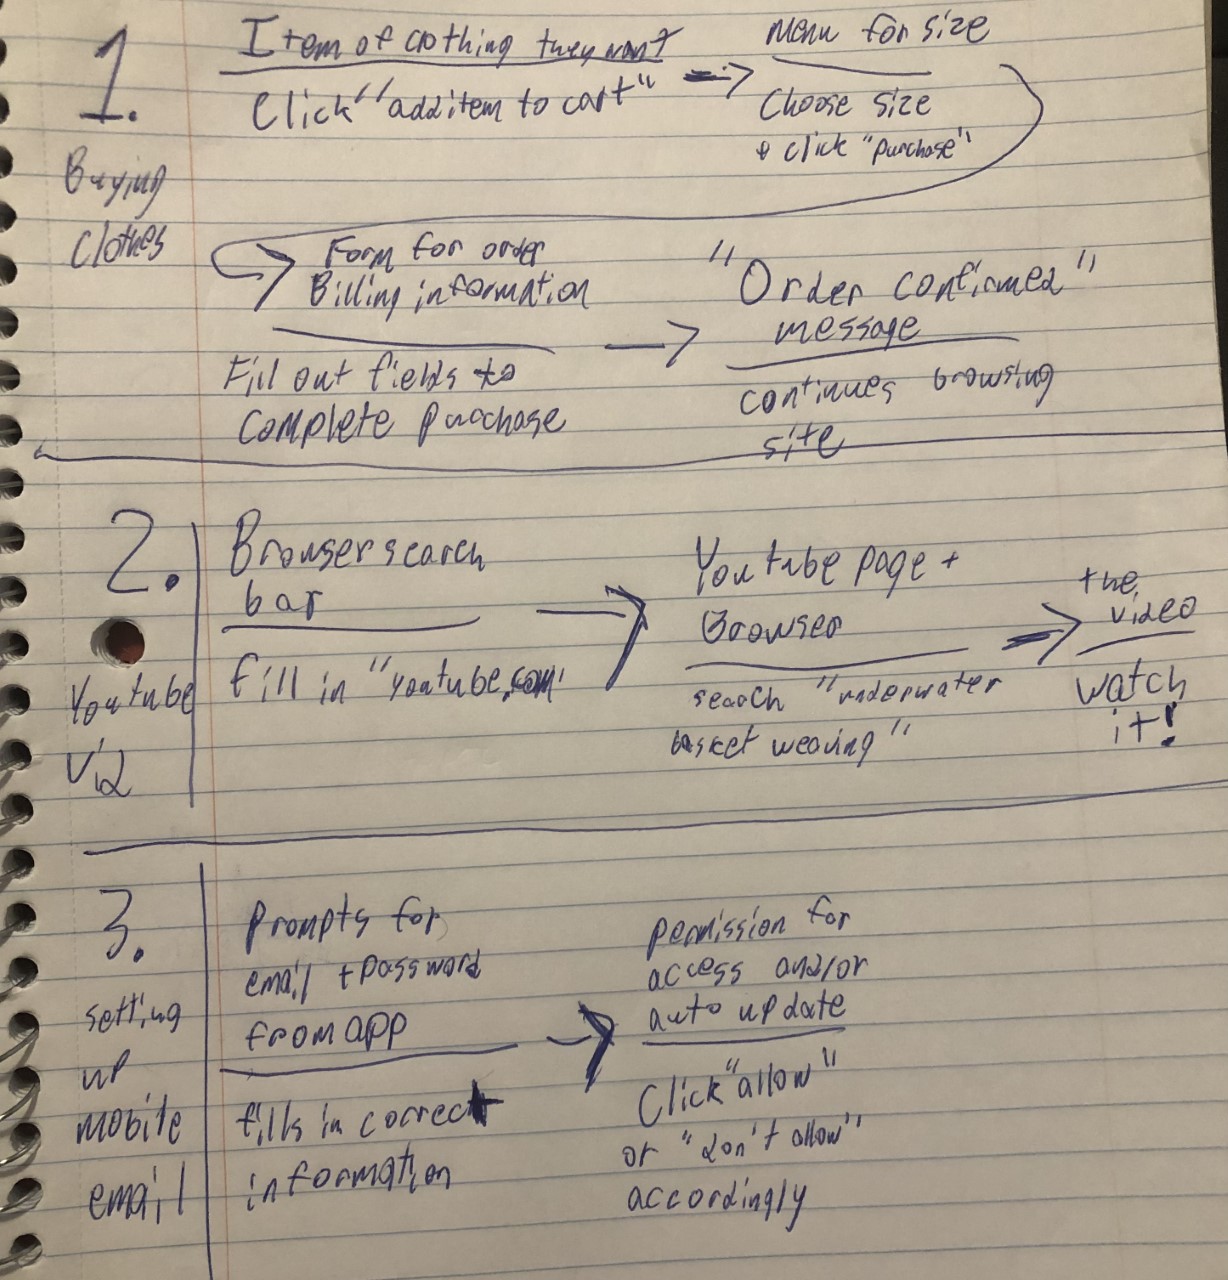 1.
Buying
Clothes
Item of clothing they want
Click "add item to cart"
Menu for size
Choose size
+ click "purchase"
Form for order
Billing information
Fill out fields to
complete purchase
"Order confirmed"
message
continues browsing
site
2.
Youtube
Vid
Browser search
bar
fill in "youtube.com"
Youtube page +
Browser
search "underwater
basket weaving"
the
video
watch
it!
3.
setting
up
mobile
email
Prompts for
email + password
from app
fills in correct
information
permission for
access and/or
auto update
Click "allow"
or "don't allow"
accordingly